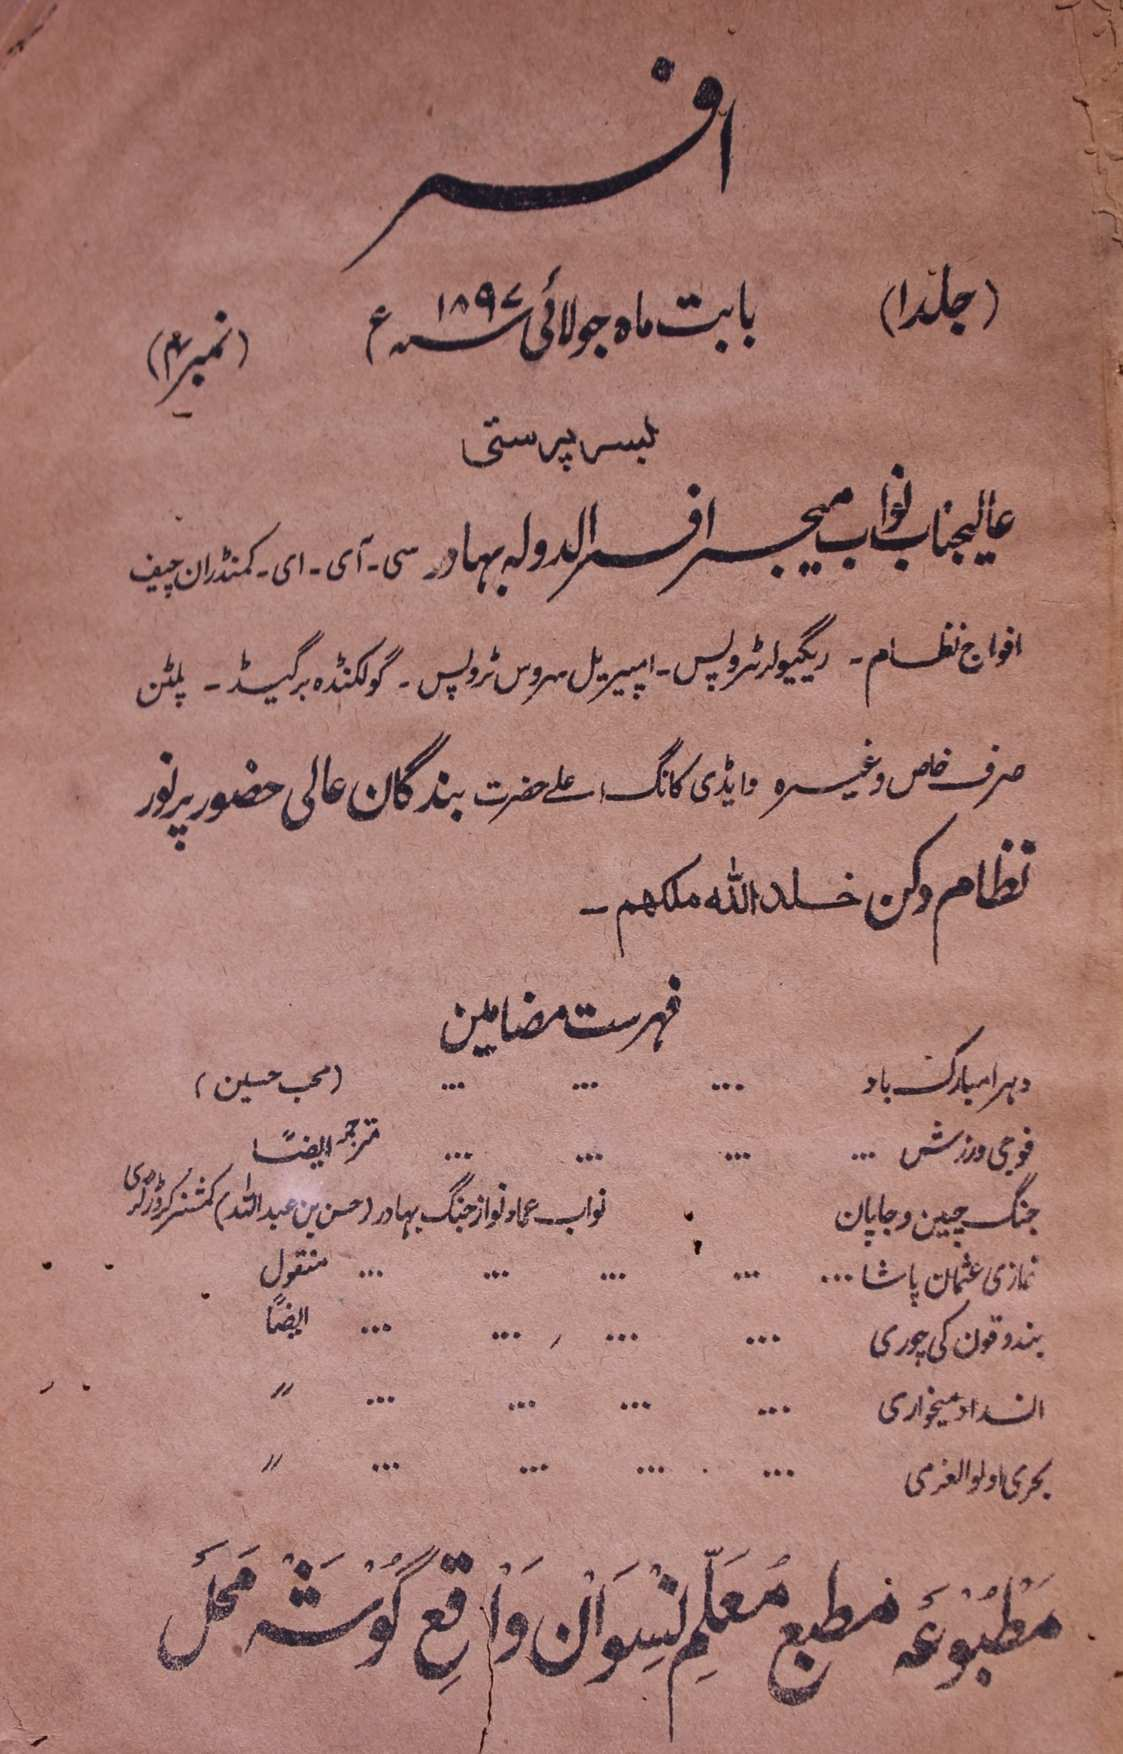 افسر
(جلد ۱) بابت ماہ جولائی سنہ ۱۸۹۷ ع (نمبر ۴)
بسر پرستی
عالیجناب نواب میجر افسر الدولہ بہادر سی۔آی۔ای۔کمنڈران چیف
افواج نظام۔ ریگیولر ٹروپس۔ امپیریل سروس ٹروپس۔ گولکنڈہ برگیڈ۔ پلٹن
صرف خاص وغیرہ و ایڈی کانگ اعلےٰ حضرت بندگان عالی حضور پرنور
نظام دکن خلد اللہ ملکہم۔
فہرست مضامین
دہرا مبارک باد ... ... ... (محب حسین)
فوجی ورزش ... ... ... ... ترجمہ ایضاً
جنگ چین و جاپان نواب عماد نواز جنگ بہادر (حسن بن عبداللہ) کمشنر کروڑگری
غازی عثمان پاشا ... ... ... ... ... منقول
بندوقون کی چوری ... ... ... ... ایضاً
انسداد میخواری ... ... ... ... 〃
بحری اولوالعزمی ... ... ... ... 〃
مَطْبُوْعَہ مطبع مُعَلِّمِ نِسْوَانْ وَاقِعِ گُوْشَہ مَحَل